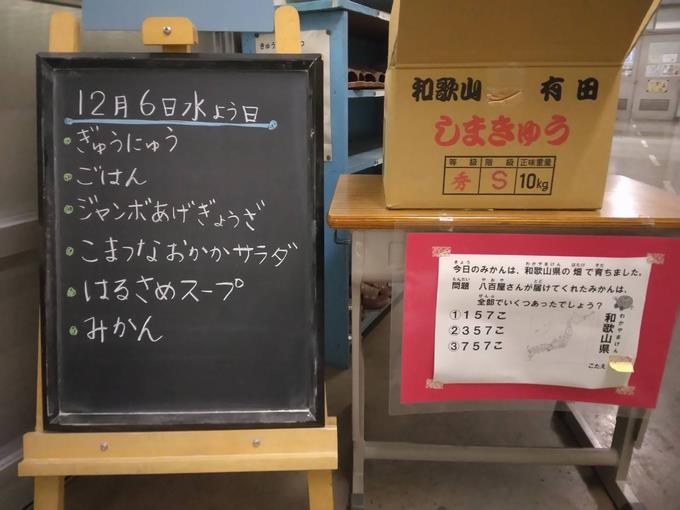 12月6日水よう日
ぎゅうにゅう
ごはん
ジャンボあげぎょうざ
こまつなおかかサラダ
はるさめスープ
みかん
和歌山 有田
しまきゅう
等級 階級 正味重量
秀 S 10kg
今日のみかんは、和歌山県の畑で育ちました。
問題 八百屋さんが届けてくれたみかんは、
全部でいくつあったでしょう？
①157こ
②357こ
③757こ
和歌山県
こたえ